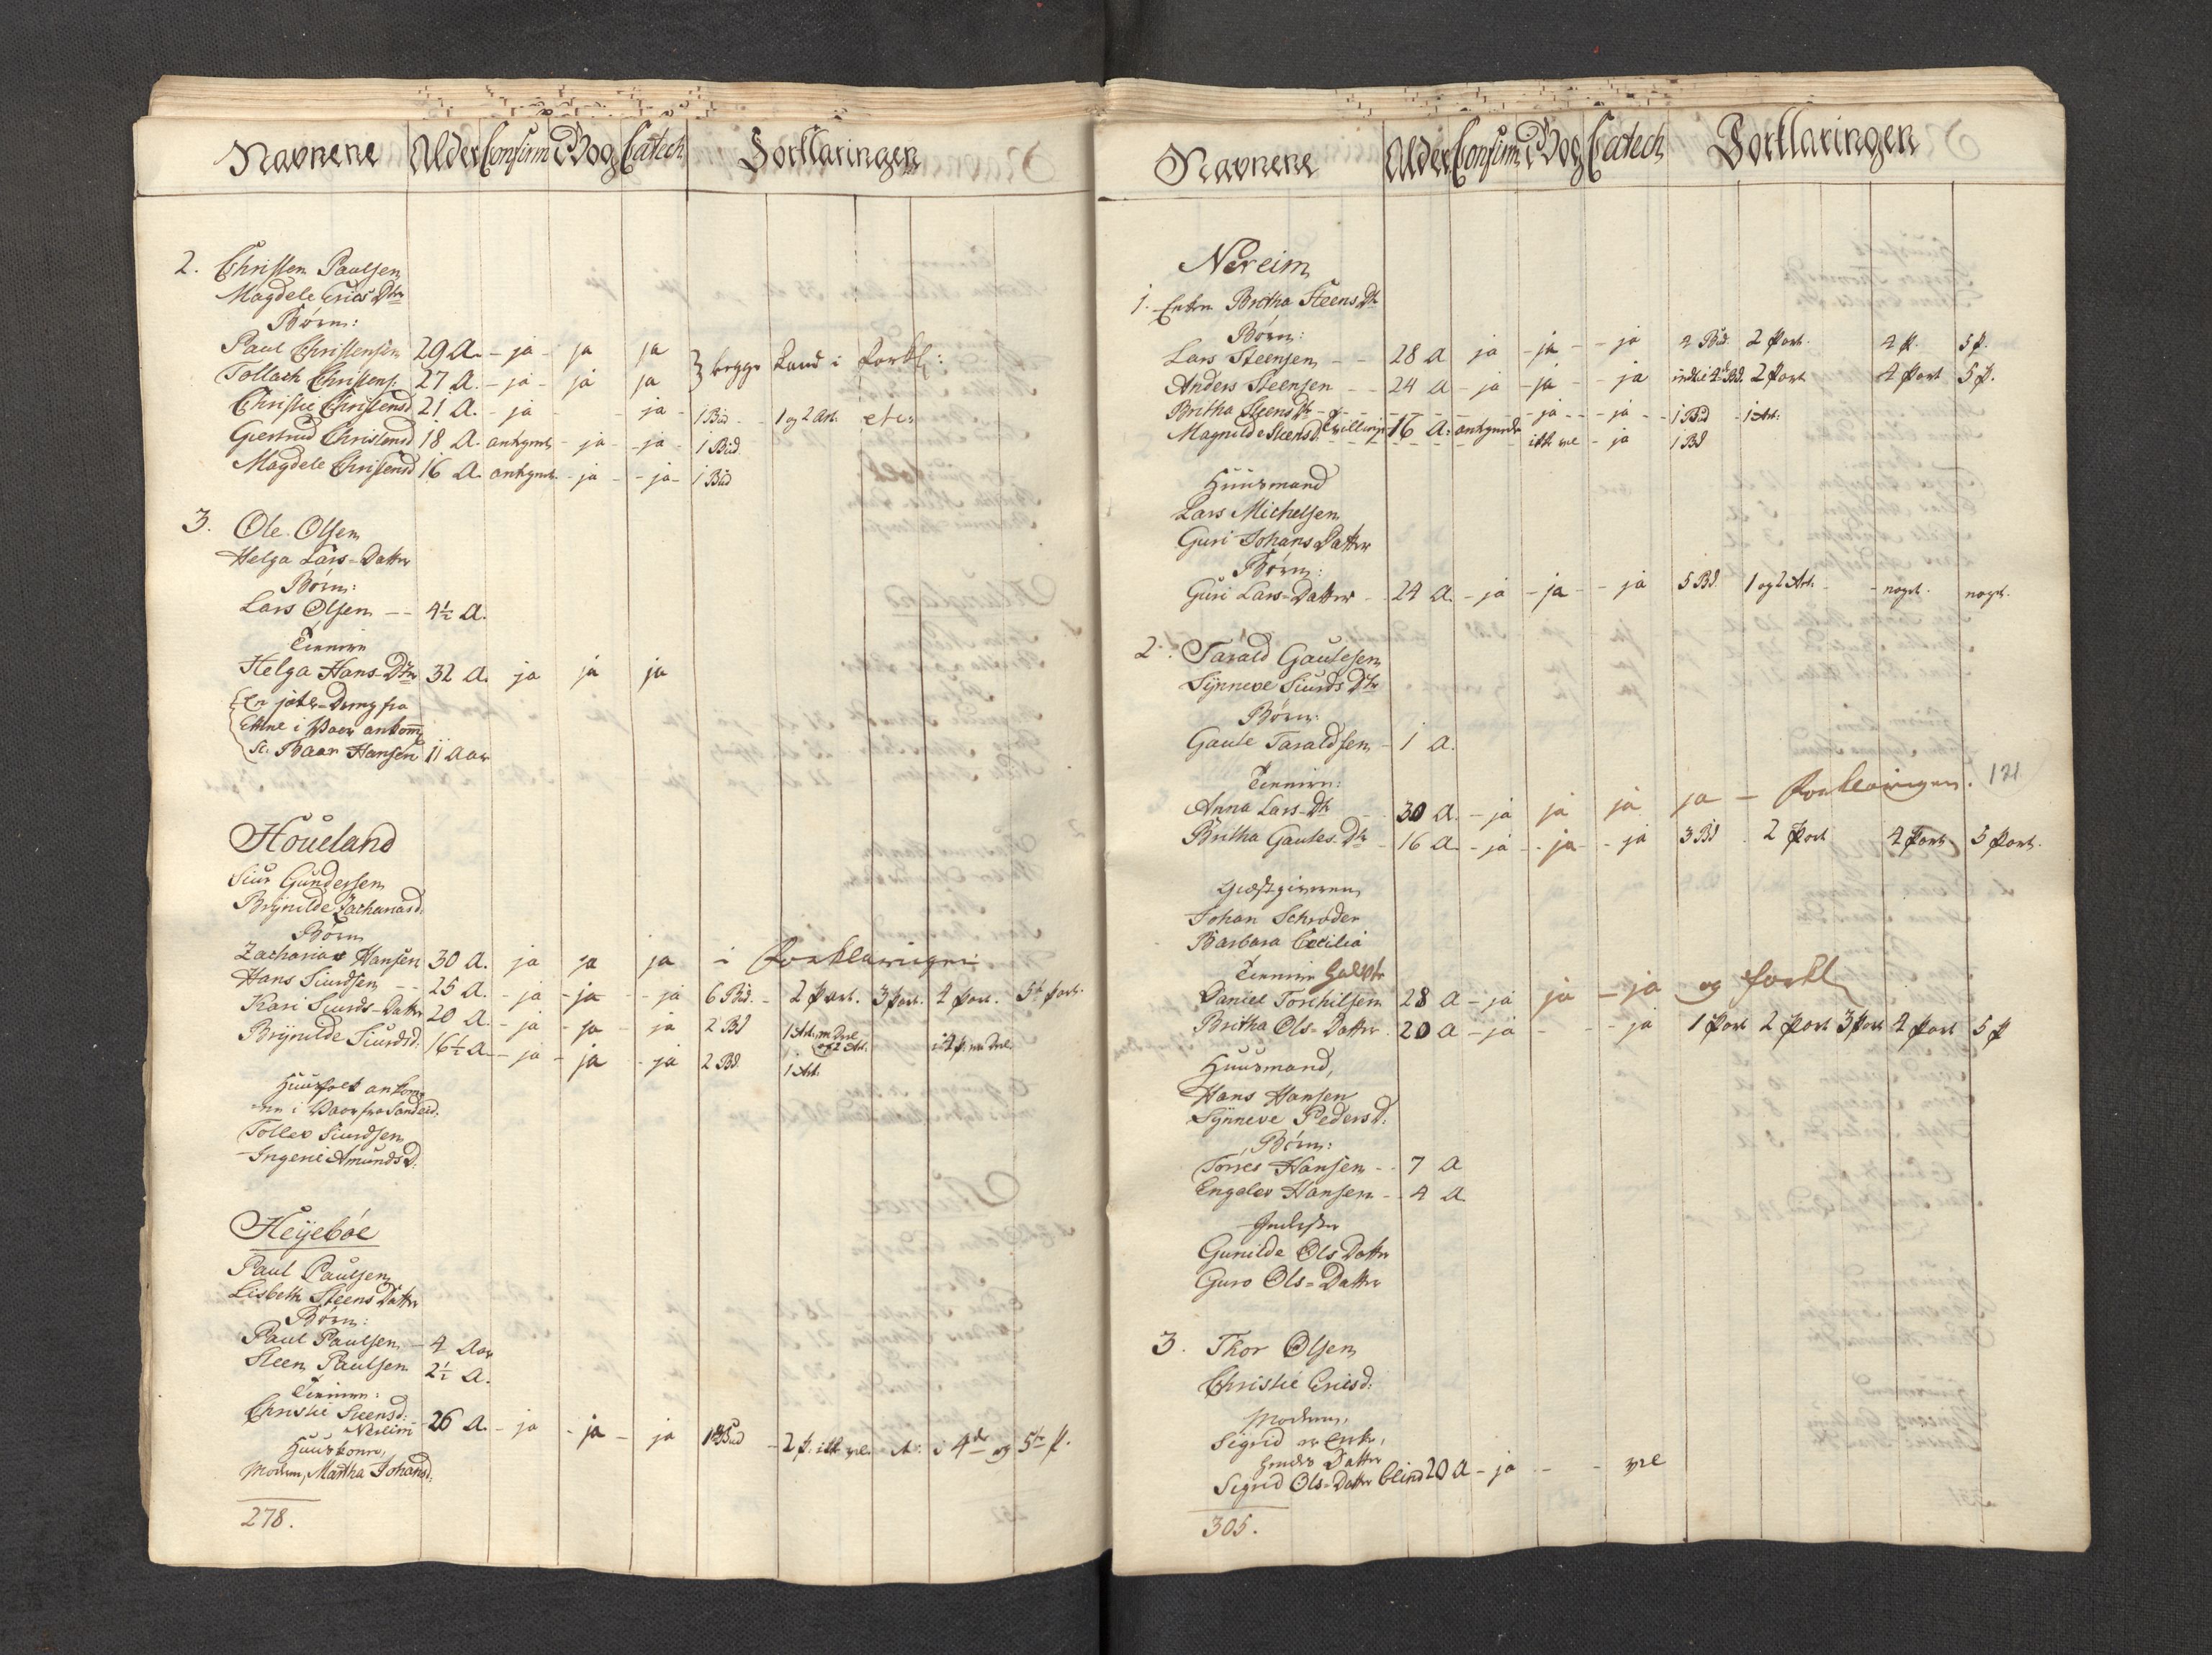 Navnene Alder Confirm i Bog Catech Forklaringen
2. Christen Paulsen
Magdele Erics Dtr
Børn:
Paul Christensen 29 A. - ja - ja ja
Tollach Christens. 27 A. - ja - ja ja } begge Land i Forkl:
Christie Christensd 21 A. - ja - - ja - 1 Bud - 1 og 2 Art. etc
Giertrud Christensd 18 A. antegnet - ja - - ja - 1 Bud.
Magdele Christensd 16 A. antegnet - ja - - ja - 1 Bud
3. Ole Olsen
Helga Lars-Datter
Børn:
Lars Olsen -- 4½ A.
Tienner
Helga Hans-Dtr 32 A. ja ja ja
En jæte-Dreng fra
Ettne i Vaar ankom̄
sc. Baar Hansen 11 Aar
Houeland
Siur Gundersen
Brynilde Zachariasd.
Børn
Zacharias Hansen 30 A. ja ja ja - i Forklaringen
Hans Siurdsen -- 25 A. - ja - ja - - ja 6 Bud. - 2 Part. 3 Part. 4 Part. 5te Part.
Kari Siurds-Datter 20 A. - ja - ja - ja 2 Bd 1 Art. en Deel og 2 Art. i 4 P. en Deel
Brynilde Siurdsd. 16½ A. - ja - ja - ja 2 Bd. 1 Art.
Huusfolk ankom-
-en i Vaar fra Sandeid.
Tollev Siurdsen
Ingeri Amunds D.
Heyebøe
Paul Paulsen
Lisbeth Steens Datter
Børn:
Paul Paulsen - 4 Aar
Steen Paulsen 2½ A.
Tienner:
Christie Steensd:
Nereim - 26 A. - ja - ja - ja 1 Bud - 2 P. ikke vel i 4de og 5te P.
Huuskone,
Moderen, Martha Johansd:
278.
Navnene Alder Confirm i Bog Catech Forklaringen
Nereim
1. Enken Britha Steens Dtr
Børn:
Lars Steensen - - 28 A ja - ja - - ja 4 Bud. 2 Part. 4 P. 5 P.
Anders Steensen - - 24 A - ja - ja - - ja indtil 4de Bd. 2 Part 4 Part 5 P.
Britha Steens Dtr - - - - - ja - - - ja - - 1 Bud - 1 Art:
Magnilde Steensd. Tvillinge 16 A. antegnede ikke vel - ja 1 Bd
Huusmand
Lars Michelsen
Guri Johans Datter
Børn:
Guri Lars-Datter - 24 A. - ja - ja - - ja 5 Bd. 1 og 2 Art. - - noget. noget.
2. Tarald Gautesen
Synneve Siurds Dtr
Børn:
Gaute Taraldsen - 1 A.
Tienner:
Anna Lars-Dtr 30 A. - ja ja ja ja - Forklaringen. 121
Britha Gautes-Dtr - 16 A. - ja - - ja - - ja 3 Bd. 2 Part 4 Part 5 Part.
Giæstgiveren
Johan Schrøder
Barbara Cecilia
Tienner
Daniel Torchilsen 28 A - ja ja - ja og Forkl
Britha Ols-Datter 20 A - ja - - - ja 1 Part 2 Part 3 Part 4 Part 5 P
Huusmand,
Hans Hansen
Synneve Peders D:
Børn:
Torres Hansen -- 7 A
Engelev Hansen - 4 A.
Inderster
Gunilde Ols Datter
Guro Ols-Datter
3. Thor Olsen
Christie Ericsd:
Moderen,
Sigrid er Enke,
hendes Datter
Sigrid Ols-Datter blind 20 A - ja - - vel
305.